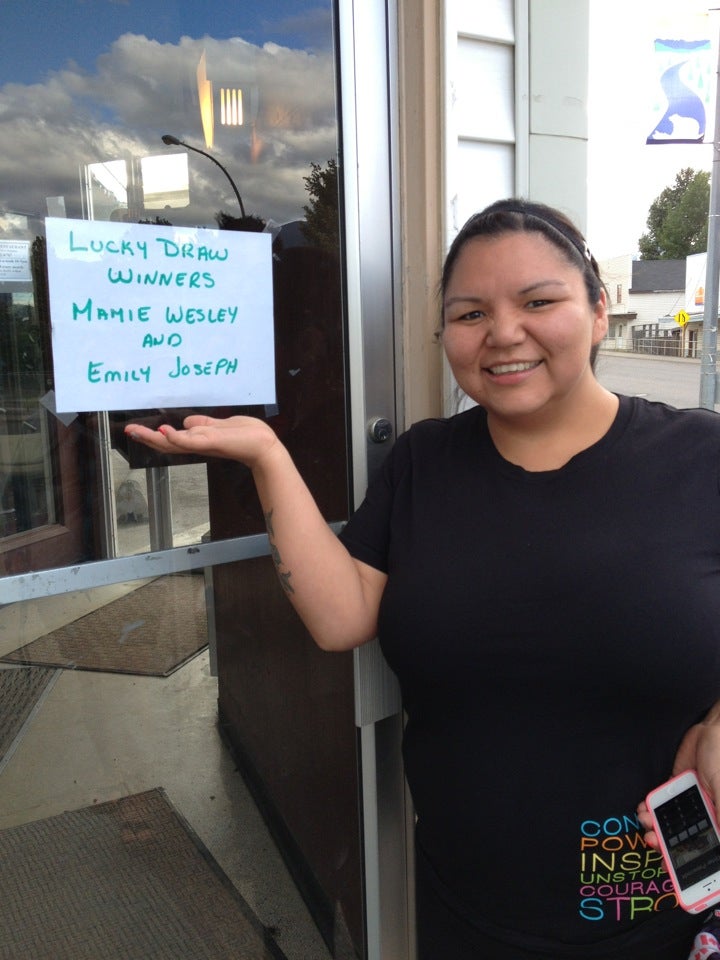 LUCKY DRAW
WINNERS
MAMIE WESLEY
AND
EMILY JOSEPH
RESTAURANT
CON
POW
INSP
UNSTOP
COURAG
STRO